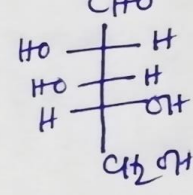 CHO
HO H
HO H
H OH
CH2OH